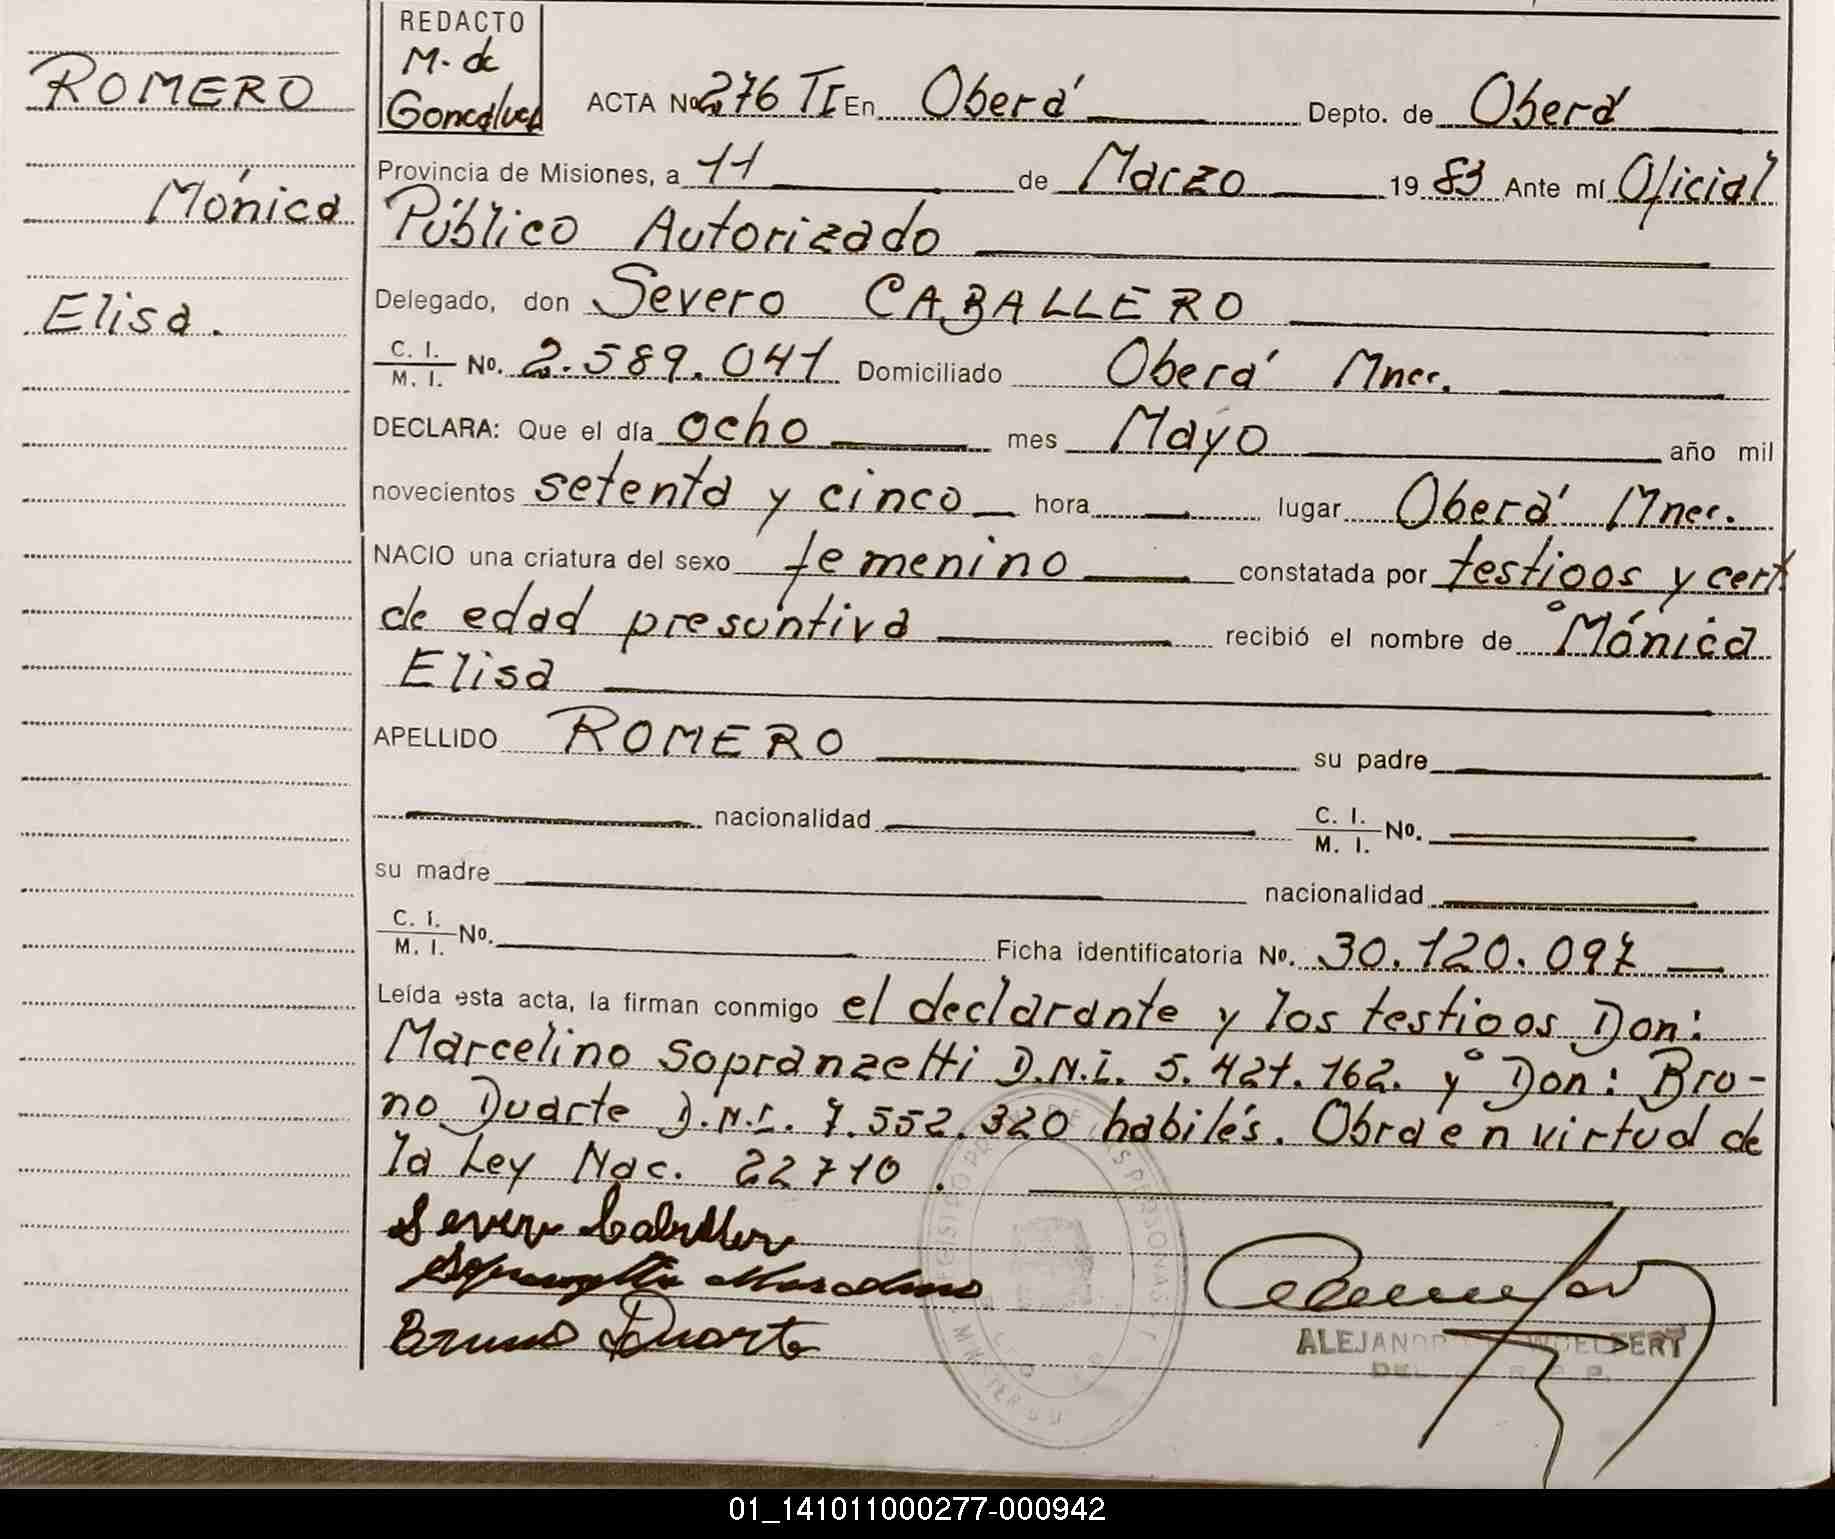 ROMERO
Mónica
Elisa.
REDACTO
M. de
Goncalves
ACTA Nº 276 TI En Oberá Depto. de Oberá
Provincia de Misiones, a 11 de Marzo 19 83 Ante mí Oficial
Público Autorizado
Delegado, don Severo CABALLERO
C. I.
M. I. Nº. 2.589.041 Domiciliado Oberá Mnes.
DECLARA: Que el día ocho mes Mayo año mil
novecientos setenta y cinco hora lugar Oberá Mnes.
NACIO una criatura del sexo femenino constatada por testigos y cert
de edad presuntiva recibió el nombre de Mónica
Elisa
APELLIDO ROMERO su padre
nacionalidad C. I.
M. I. Nº.
su madre nacionalidad
C. I.
M. I. Nº. Ficha identificatoria Nº. 30.120.097
Leída esta acta, la firman conmigo el declarante y los testigos Don:
Marcelino Sopranzetti D.N.I. 5.421.162. y Don: Bru-
no Duarte D.N.I. 7.552.320 habilés. Obra en virtud de
la Ley Nac. 22710.
Severo Caballero
Sopranzetti Marcelino
Bruno Duarte
01_141011000277-000942